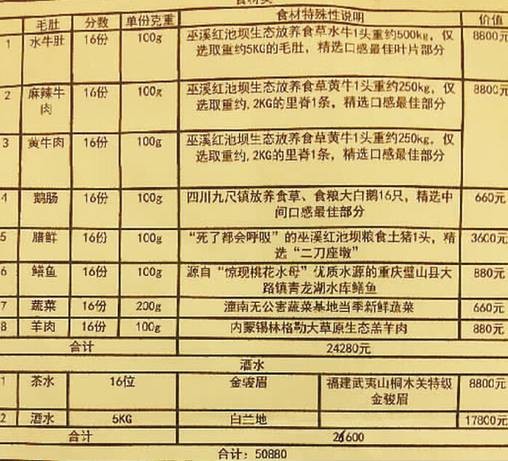 毛肚 分数 单份克重 食材特殊性说明 价值
1 水牛肚 16份 100g 巫溪红池坝生态放养食草水牛1头重约500kg,仅 8800元
选取重约5KG的毛肚,精选口感最佳叶片部分
2 麻辣牛 16份 100g 巫溪红池坝生态放养食草黄牛1头重约250kg,仅 8800元
肉 选取重约,2KG的里脊1条,精选口感最佳部分
3 黄牛肉 16份 100g 巫溪红池坝生态放养食草黄牛1头重约250kg,仅
选取重约,2KG的里脊1条,精选口感最佳部分
4 鹅肠 16份 100g 四川九尺镇放养食草、食粮大白鹅16只,精选中 660元
间口感最佳部分
5 腊鲜 16份 100g “死了都会呼吸”的巫溪红池坝粮食土猪1头,精 3600元
选“二刀座墩”
6 鳝鱼 16份 100g 源自“惊现桃花水母”优质水源的重庆璧山县大 880元
路镇青龙湖水库鳝鱼
7 蔬菜 16份 200g 潼南无公害蔬菜基地当季新鲜蔬菜 660元
8 羊肉 16份 100g 内蒙锡林格勒大草原生态羔羊肉 880元
合计 24280元
酒水
1 茶水 16位 金骏眉 福建武夷山桐木关特级 8800元
金骏眉
2 酒水 5KG 白兰地 17800元
合计 26600
合计:50880